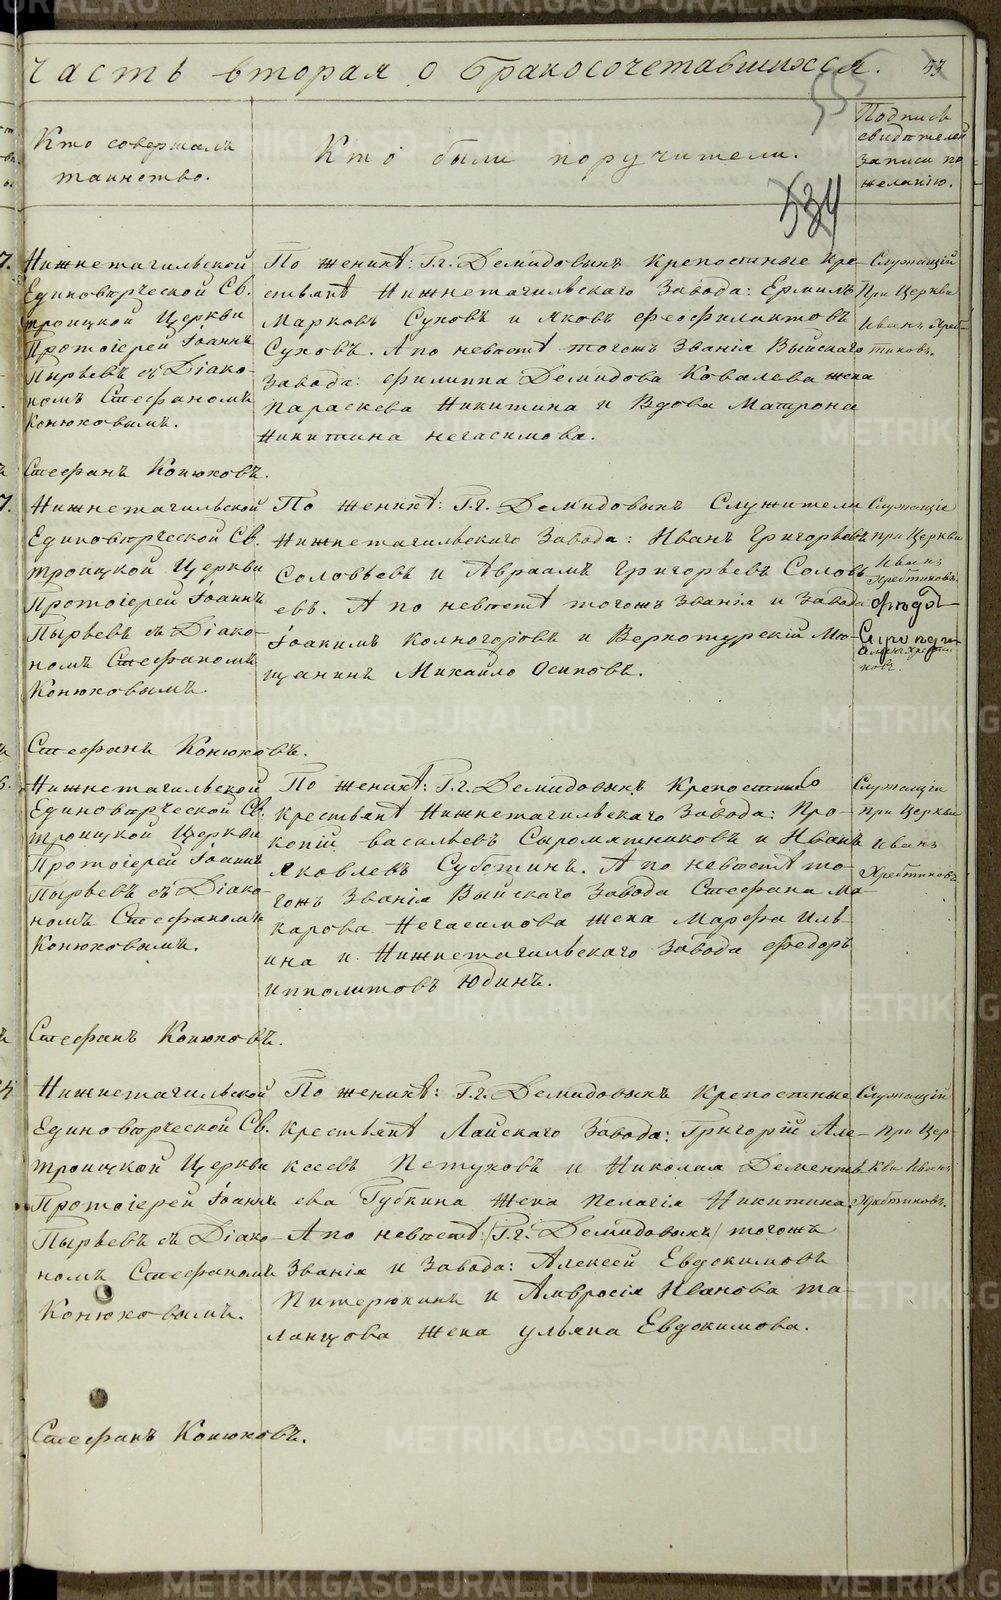 часть вторая о бракосочетавшихся.
555
534
Кто совершалъ
таинство.
Кто были поручители.
Подпись
свидѣтелей
записи по
желанію.
Нижнетагильской
Единовѣрческой Св.
троицкой Церкви
Протоіерей Іоаннъ
Пырьевъ съ Діако-
номъ Стефаномъ
Конюховымъ.
По женихѣ: Гг. Демидовыхъ крепостные кре-
стьянѣ Нижнетагильскаго Завода: Ермилъ
Марковъ Суховъ и Яковъ Феофилактовъ
Суховъ. А по невѣстѣ тогожъ Званія Выйскаго
завода: Филиппа Демидова Ковалева жена
Параскева Никитина и Вдова Матрона
Никитина Негасимова.
Служащій
При Церкви
Иванъ Хреб-
тиковъ.
Стефанъ Конюховъ.
Нижнетагильской
Единовѣрческой Св.
троицкой Церкви
Протоіерей Іоаннъ
Пырьевъ съ Діако-
номъ Стефаномъ
Конюховымъ.
По женихѣ: Гг. Демидовыхъ Служители
Нижнетагильскаго Завода: Иванъ Григорьевъ
Соловьевъ и Авраамъ Григорьевъ Соловь
евъ. А по невѣстѣ тогожъ Званія и Завода
Іоакимъ Колногоровъ и Верхотурскій Мѣ-
щанинъ Михайло Осиповъ.
Служащіе
при Церкви
Иванъ
Хребтиковъ.
Стефанъ Конюховъ.
Нижнетагильской
Единовѣрческой Св.
троицкой Церкви
Протоіерей Іоаннъ
Пырьевъ съ Діако-
номъ Стефаномъ
Конюховымъ.
По женихѣ: Гг. Демидовыхъ Крепостные
крестьянѣ Нижнетагильскаго Завода: Про-
копій Васильевъ Сыромятниковъ и Иванъ
Яковлевъ Субботинъ. А по невѣстѣ то-
гожъ Званія Выйскаго Завода Стефана Ма-
карова Негасимова жена Марфа Иль-
ина и Нижнетагильскаго Завода Федоръ
Ипполитовъ Юдинъ.
Служащій
при Церкви
Иванъ
Хребтиковъ
Стефанъ Конюховъ.
Нижнетагильской
Единовѣрческой Св.
троицкой Церкви
Протоіерей Іоаннъ
Пырьевъ съ Діако-
номъ Стефаномъ
Конюховымъ.
По женихѣ: Гг. Демидовыхъ Крепостные
крестьянѣ Лайскаго Завода: Григорій Але-
ксеевъ Петуховъ и Николая Дементь
ева Губкина жена Пелагія Никитина
А по невѣстѣ /Гг. Демидовыхъ/ тогожъ
Званія и Завода: Алексей Евдокимовъ
Питерюкинъ и Амвросія Иванова та-
ланцова жена Ульяна Евдокимова.
Служащій
при Цер-
кви Иванъ
Хребтиковъ.
Стефанъ Конюховъ.
METRIKI.GASO-URAL.RU